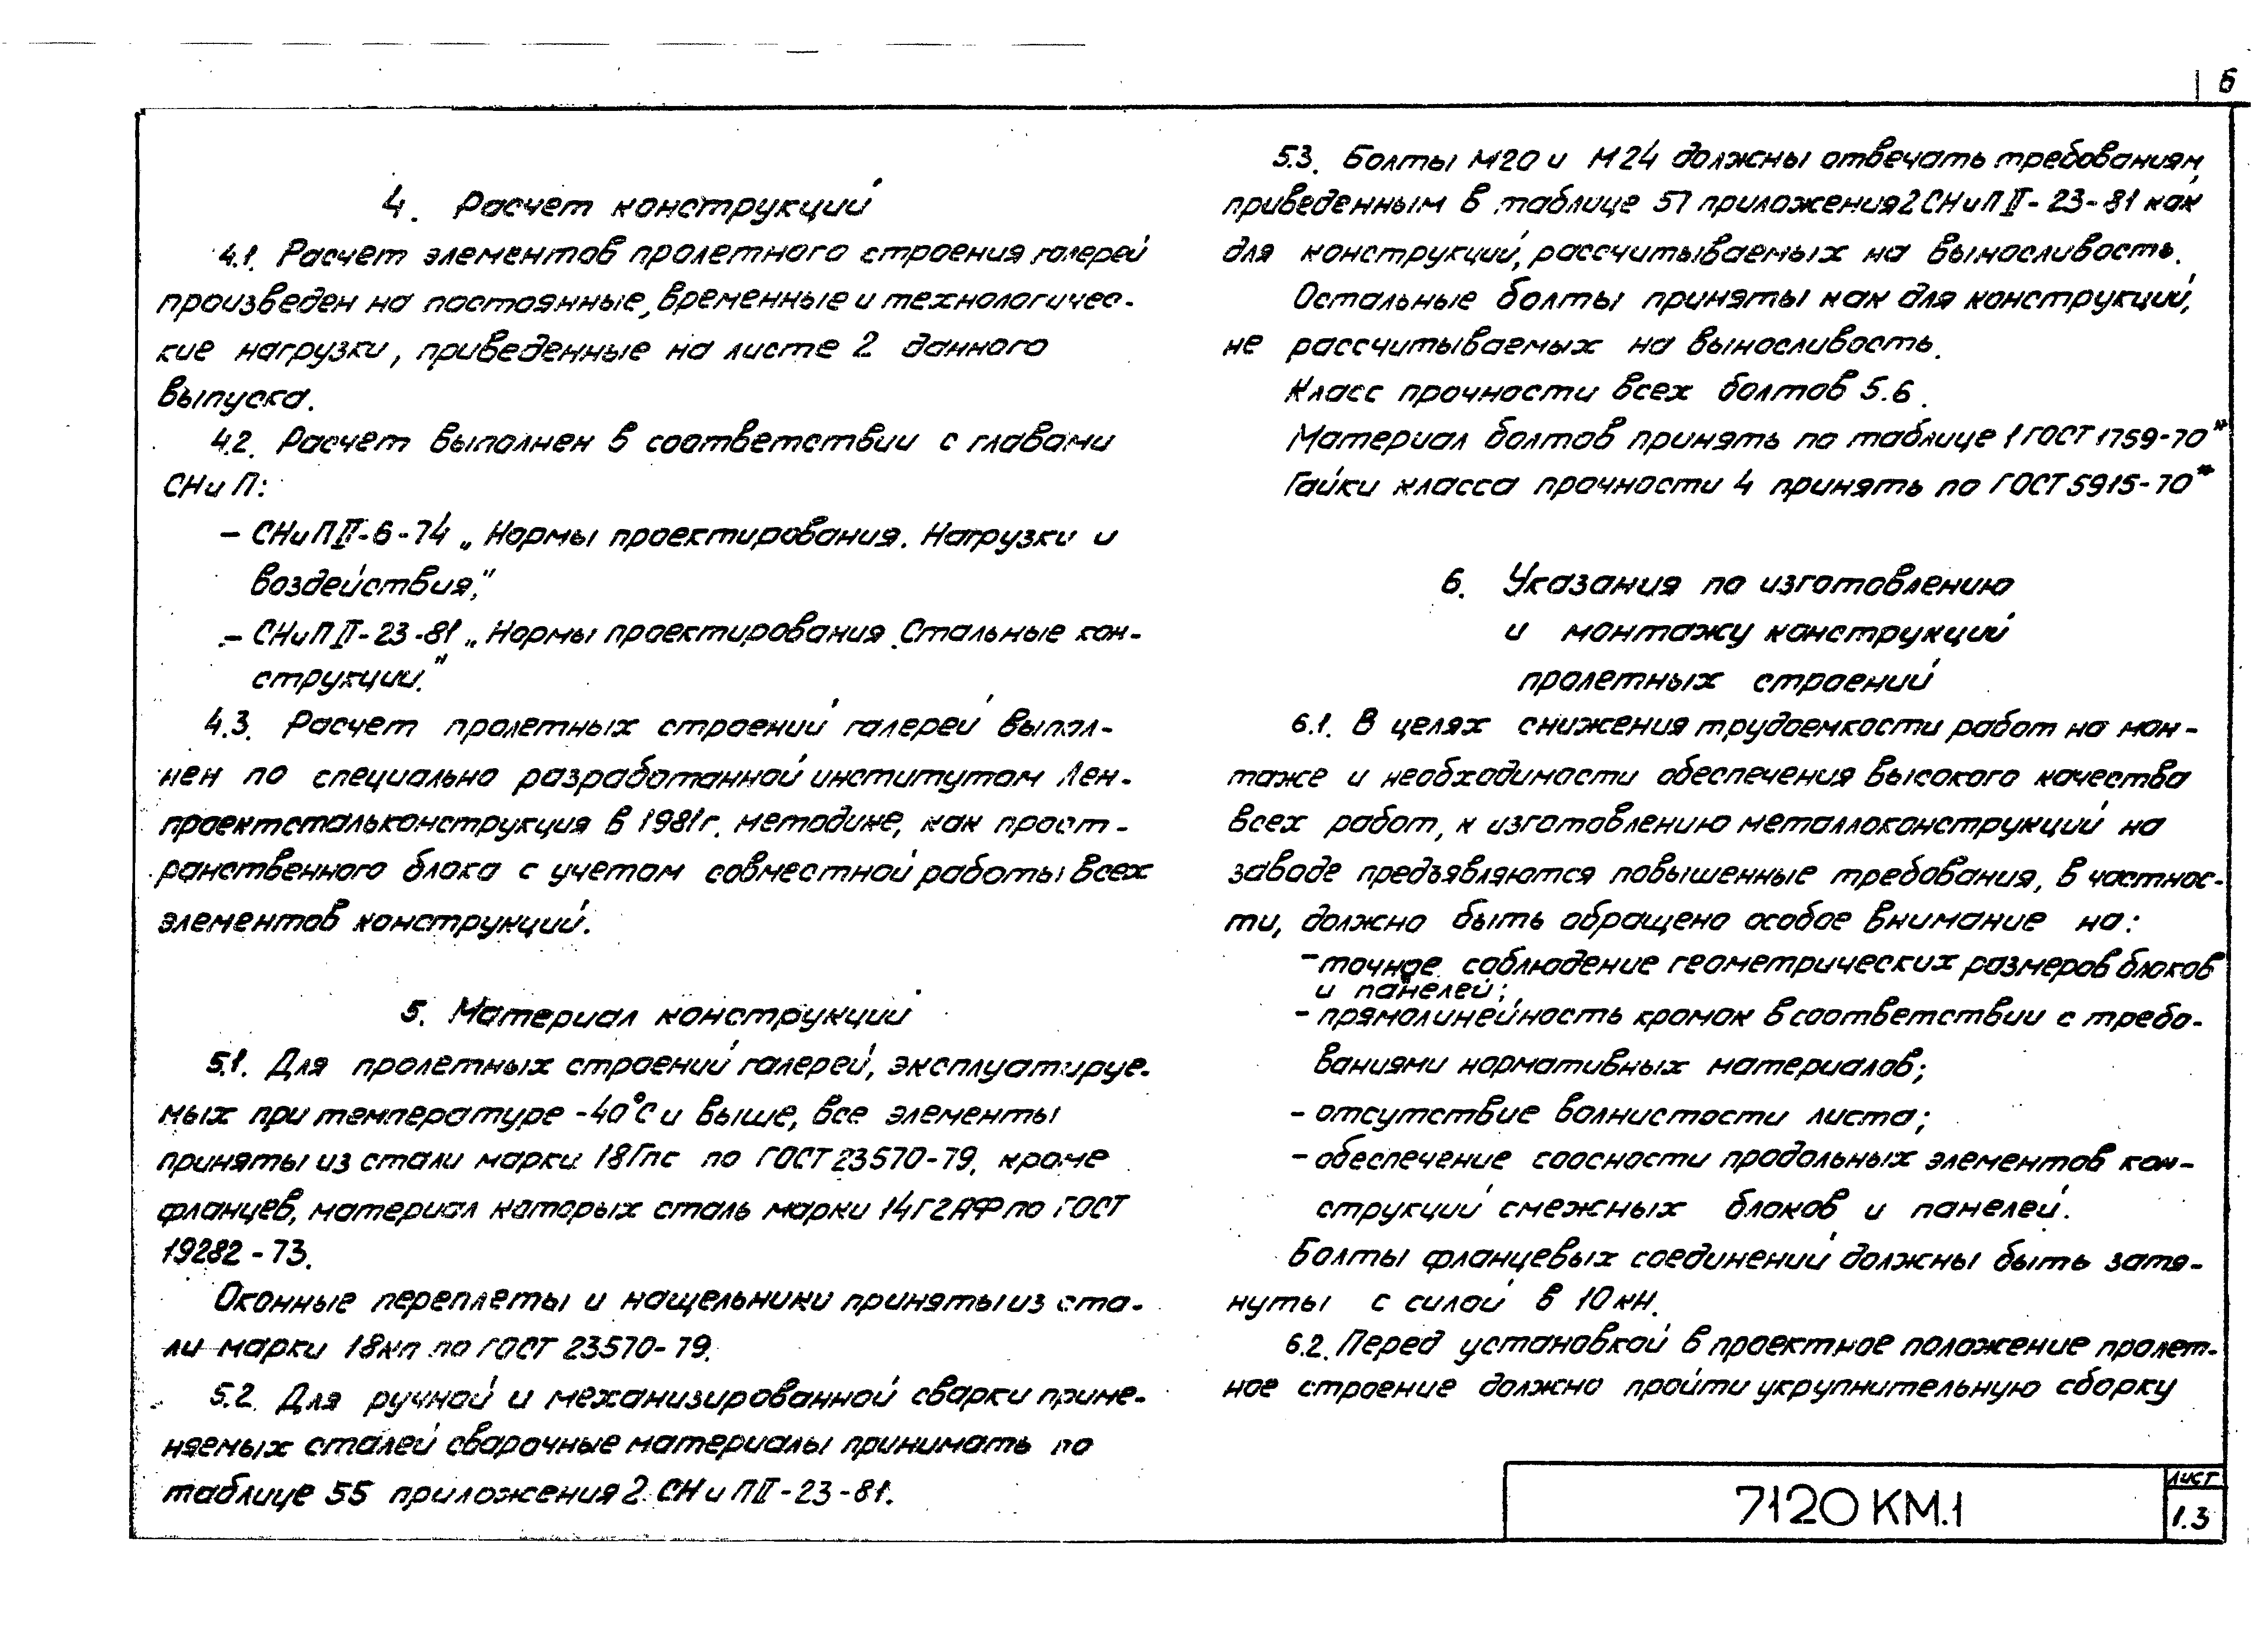 6
4. Расчет конструкций
4.1. Расчет элементов пролетного строения галерей
произведен на постоянные, временные и технологичес-
кие нагрузки, приведенные на листе 2 данного
выпуска.
4.2. Расчет выполнен в соответствии с главами
СНиП:
– СНиП II-6-74 „Нормы проектирования. Нагрузки и
воздействия,"
– СНиП II-23-81 „Нормы проектирования. Стальные кон-
струкции."
4.3. Расчет пролетных строений галерей выпол-
нен по специально разработанной институтом Лен-
проектстальконструкция в 1981г. методике, как прост-
ранственного блока с учетом совместной работы всех
элементов конструкций.
5. Материал конструкций
5.1. Для пролетных строений галерей, эксплуатируе-
мых при температуре -40°С и выше, все элементы
приняты из стали марки 18Гпс по ГОСТ 23570-79, кроме
фланцев, материал которых сталь марки 14Г2АФ по ГОСТ
19282-73.
Оконные переплеты и нащельники приняты из ста-
ли марки 18кп по ГОСТ 23570-79.
5.2. Для ручной и механизированной сварки приме-
няемых сталей сварочные материалы принимать по
таблице 55 приложения 2 СНиП II-23-81.
5.3. Болты М20 и М24 должны отвечать требованиям,
приведенным в таблице 57 приложения 2 СНиП II-23-81 как
для конструкций, рассчитываемых на выносливость.
Остальные болты приняты как для конструкций,
не рассчитываемых на выносливость.
Класс прочности всех болтов 5.6.
Материал болтов принять по таблице 1 ГОСТ 1759-70*
Гайки класса прочности 4 принять по ГОСТ 5915-70*
6. Указания по изготовлению
и монтажу конструкций
пролетных строений
6.1. В целях снижения трудоемкости работ на мон-
таже и необходимости обеспечения высокого качества
всех работ, к изготовлению металлоконструкций на
заводе предъявляются повышенные требования, в частнос-
ти, должно быть обращено особое внимание на:
– точное соблюдение геометрических размеров блоков
и панелей;
– прямолинейность кромок в соответствии с требо-
ваниями нормативных материалов;
– отсутствие волнистости листа;
– обеспечение соосности продольных элементов кон-
струкций смежных блоков и панелей.
Болты фланцевых соединений должны быть затя-
нуты с силой в 10 кН.
6.2. Перед установкой в проектное положение пролет-
ное строение должно пройти укрупнительную сборку
7120 КМ.1
лист
1.3